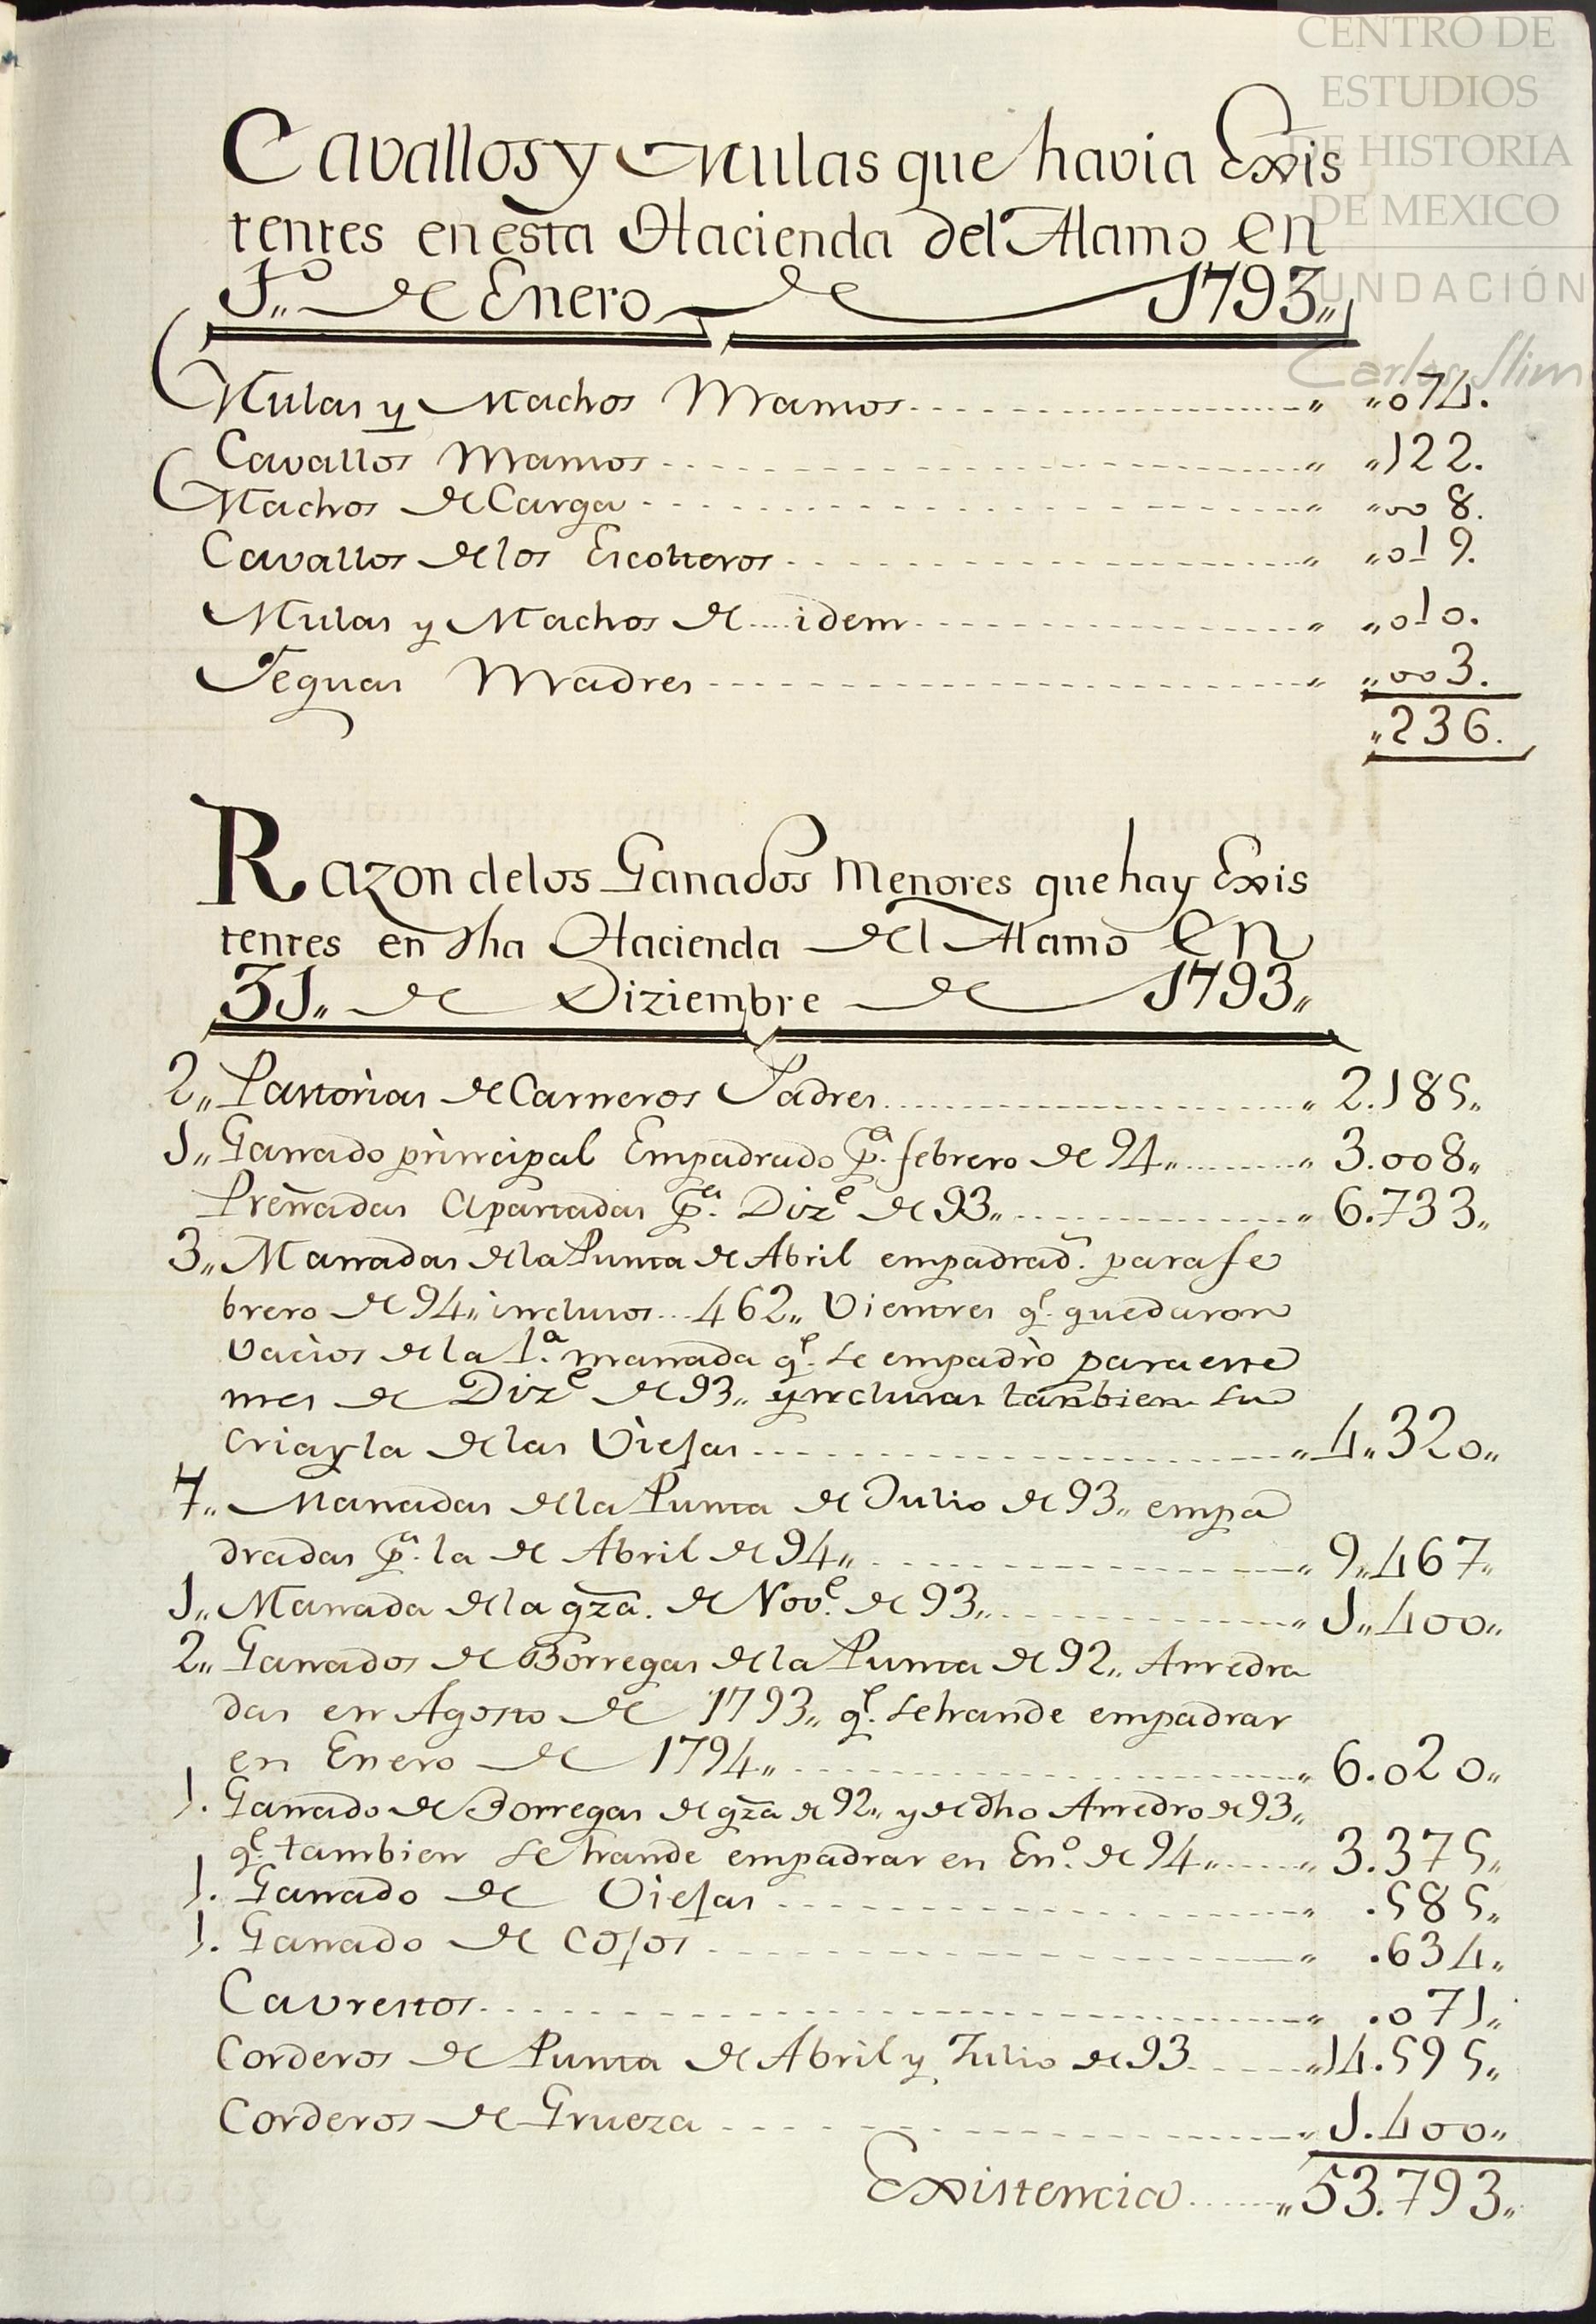 CENTRO DE
ESTUDIOS
DE HISTORIA
DE MEXICO
FUNDACIÓN
Carlos Slim
Cavallos y Mulas que havia Exis
tentes en esta Hacienda del Alamo en
1º,, de Enero de 1793,,
Mulas y Machos Mansos ,, ,,074.
Cavallos Mansos ,, ,,122.
Machos de Carga ,, ,,008.
Cavallos de los Escolteros ,, ,,019.
Mulas y Machos de idem ,, ,,010.
Yeguas Madres ,, ,,003.
,,236.
Razon de los Ganados Menores que hay Exis
tentes en dha Hacienda del Alamo en
31,, de Diziembre de 1793,,
2,, Pastorias de Carneros Padres ,, 2.185,,
1,, Ganado principal Empadrado pª. febrero de 94,, ,, 3.008,,
Preñadas Apartadas pª. Dizᵉ de 93,, ,, 6.733,,
3,, Manadas de la Punta de Abril empadrad.ˢ para fe
brero de 94,, inclusos 462,, Vientres q.ᵉ quedaron
Vacios de la 1ª. manada q.ᵉ se empadrò para este
mes de Dizᵉ de 93,, ynclusas tambien su
cria y la de las Viejas ,, 4,,320,,
7,, Manadas de la Punta de Julio de 93,, empa
dradas pª. la de Abril de 94,, ,, 9,,467,,
1,, Manada de la gza. de Nov.ᵉ de 93,, ,, 1,,400,,
2,, Ganados de Borregas de la Punta de 92,, Arredra
das en Agosto de 1793,, q.ᵉ se han de empadrar
en Enero de 1794,, ,, 6.020,,
1. Ganado de Borregas de gza de 92,, y de dho Arredro de 93,,
q.ᵉ tambien se han de empadrar en En.º de 94,, ,, 3.375,,
1. Ganado de Viejas ,, .585,,
1. Ganado de Cojos ,, .634,,
Cavrestos ,, .071,,
Corderos de Punta de Abril y Julio de 93 ,,14.595,,
Corderos de Grueza ,, 1.400,,
Existencia ,,53.793,,